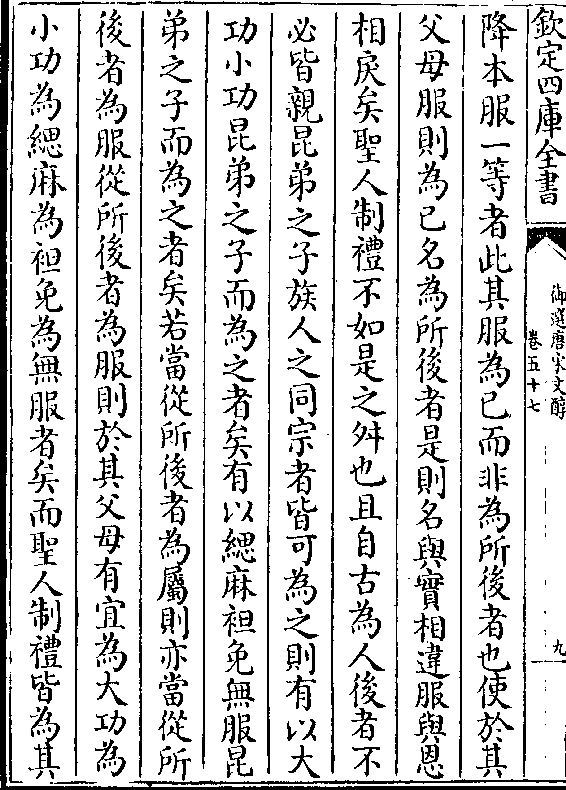 欽定四庫全書
御選唐宋文醇
卷五十七
九
降本服一等者此其服為已而非為所後者也使於其
父母服則為已名為所後者是則名與實相違服與恩
相戾矣聖人制禮不如是之舛也且自古為人後者不
必皆親昆弟之子族人之同宗者皆可為之則有以大
功小功昆弟之子而為之者矣有以緦麻袒免無服昆
弟之子而為之者矣若當從所後者為屬則亦當從所
後者為服從所後者為服則於其父母有宜為大功為
小功為緦麻為袒免為無服者矣而聖人制禮皆為其